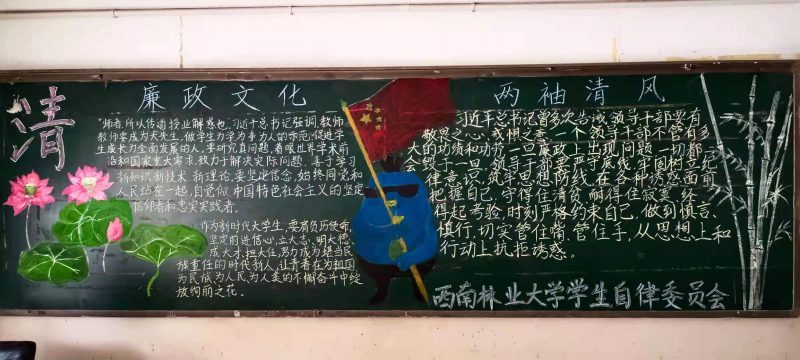 清
廉政文化
"师者,所以传道授业解惑也。"习近平总书记强调,教师
教师要成为大先生,做学生为学为事为人的示范,促进学
生成长为全面发展的人。要研究真问题,着眼世界学术前
沿和国家重大需求,致力于解决实际问题,善于学习
新知识、新技术、新理论。要坚定信念,始终同党和
人民站在一起,自觉做中国特色社会主义的坚定
信仰者和忠实实践者。
作为新时代大学生,要肩负历史使命,
坚定前进信心,立大志、明大德、
成大才、担大任,努力成为堪当民
族重任的时代新人,让青春在为祖国、
为民族、为人民、为人类的不懈奋斗中绽
放绚丽之花。
两袖清风
习近平总书记曾多次告诫领导干部要有
敬畏之心、戒惧之意,一个领导干部不管有多
大的功绩和功劳,一旦廉政上出现问题,一切都
会毁于一旦。领导干部要严守底线,牢固树立纪
律意识,筑牢思想防线,在各种诱惑面前
把握自己,守得住清贫、耐得住寂寞、经
得起考验,时刻严格约束自己,做到慎言、
慎行,切实管住嘴、管住手,从思想上和
行动上抗拒诱惑。
西南林业大学学生自律委员会